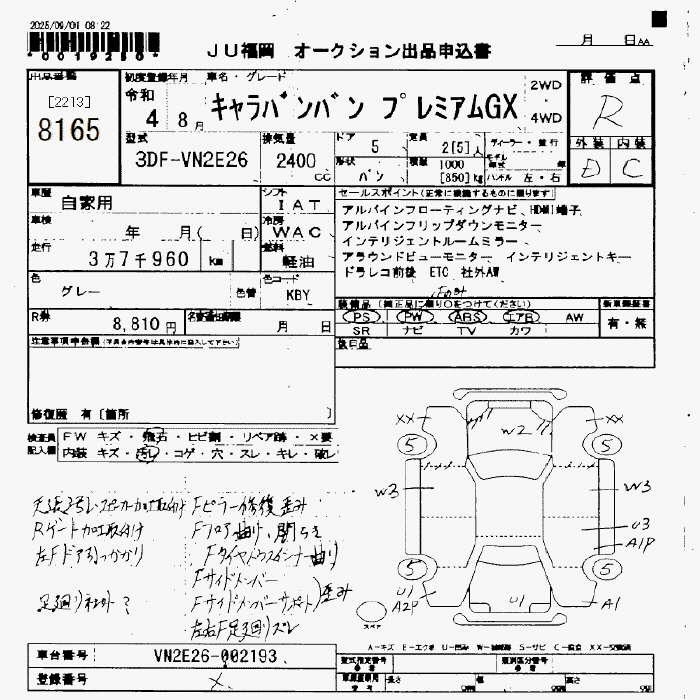 2025/09/01 08:22
*0019250*
JU福岡 オークション出品申込書
月 日 AA
出品番号
[2213]
8165
初度登録年月
令和
4 8月
車名・グレード
キャラバンバン プレミアムGX
2WD
4WD
評価点
R
外装 内装
D C
型式
3DF-VN2E26
排気量
2400 cc
ドア
5
定員
2[5]人
形状
バン
積載
1000
[850]kg
ディーラー・並行
モデル年式 年
ハンドル 左・右
車歴
自家用
シフト
IAT
車検
年 月( 日)
冷房
WAC
走行
3万7千960 km
燃料
軽油
色
グレー
色替
色コード
KBY
R券
8,810円
名変期限
月 日
セールスポイント(正常に機能するものに限ります)
アルパインフローティングナビ、HDMI端子
アルパインフリップダウンモニター
インテリジェントルームミラー
アラウンドビューモニター インテリジェントキー
ドラレコ前後 ETC 社外AW
装備品(純正品に限り○をつけてください)
PS PW ABS エアB AW
SR ナビ TV カワ
新車保証書
有・無
後日品
注意事項申告欄
修復歴 有[箇所 ]
検査員記入欄
FW キズ・飛石・ヒビ割・リペア跡・×要
内装 キズ・汚レ・コゲ・穴・スレ・キレ・破レ
Rゲート加工取付け
左Fドア引っかかり
Fピラー修復歪み
Fフロア曲り、開らき
Fサイドメンバー
Fサイドメンバーサポート 歪み
左右F足廻りズレ
XX XX
W2
5 5
W3 W3
U3
A1P
5 5
U1
A2P
U1
A1
スペア
A-キズ E-エクボ U-凹み W-補修跡 S-サビ C-腐食 XX-交換済
車台番号
VN2E26-002193
登録番号
×
型式指定番号
類別区分番号
長さ cm 幅 cm 高さ cm